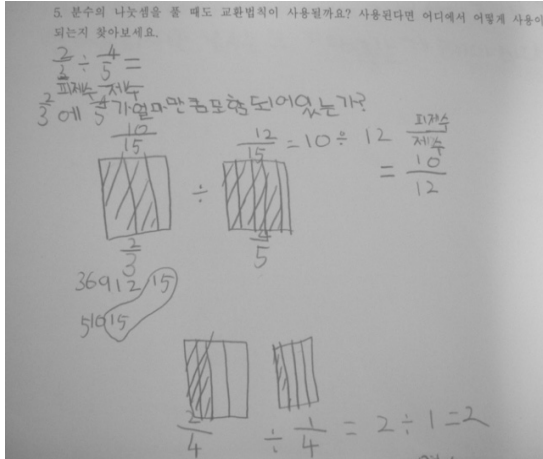 5. 분수의 나눗셈을 풀 때도 교환법칙이 사용될까요? 사용된다면 어디에서 어떻게 사용이
되는지 찾아보세요.
2/3 ÷ 4/5 =
피제수 제수
2/3에 4/5가 얼마만큼 포함되어있는가?
10/15 ÷ 12/15 = 10 ÷ 12 피제수/제수
= 10/12
2/3 4/5
3 6 9 12 15
5 10 15
2/4 ÷ 1/4 = 2 ÷ 1 = 2